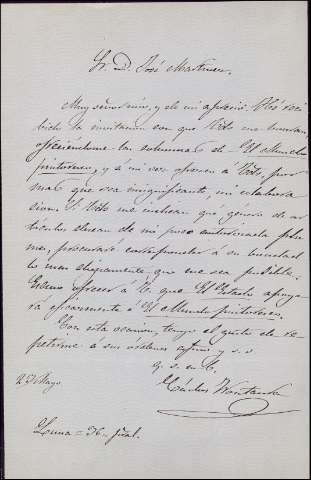 Sr. D. José Martinez.
Muy señor mio, y de mi aprecio: He reci
bido la invitacion con que Vds me honran,
ofreciéndome las columnas de El Mundo
pintoresco, y á mi vez ofrezco á Vds, por
mas que sea insignificante, mi colabora
cion. Si Vds me indican qué género de ar
tículos desean de mi poco autorizada plu
ma, procuraré corresponder á su bondad
lo mas dignamente que me sea posible.
ofrecer á V. que El Estado apoya
rá eficazmente á El Mundo pintoresco.
Con esta ocasion, tengo el gusto de re
petirme á sus órdenes afmo y s. s
q. s. m. b.
23 Mayo
Luna = 36 = pral.